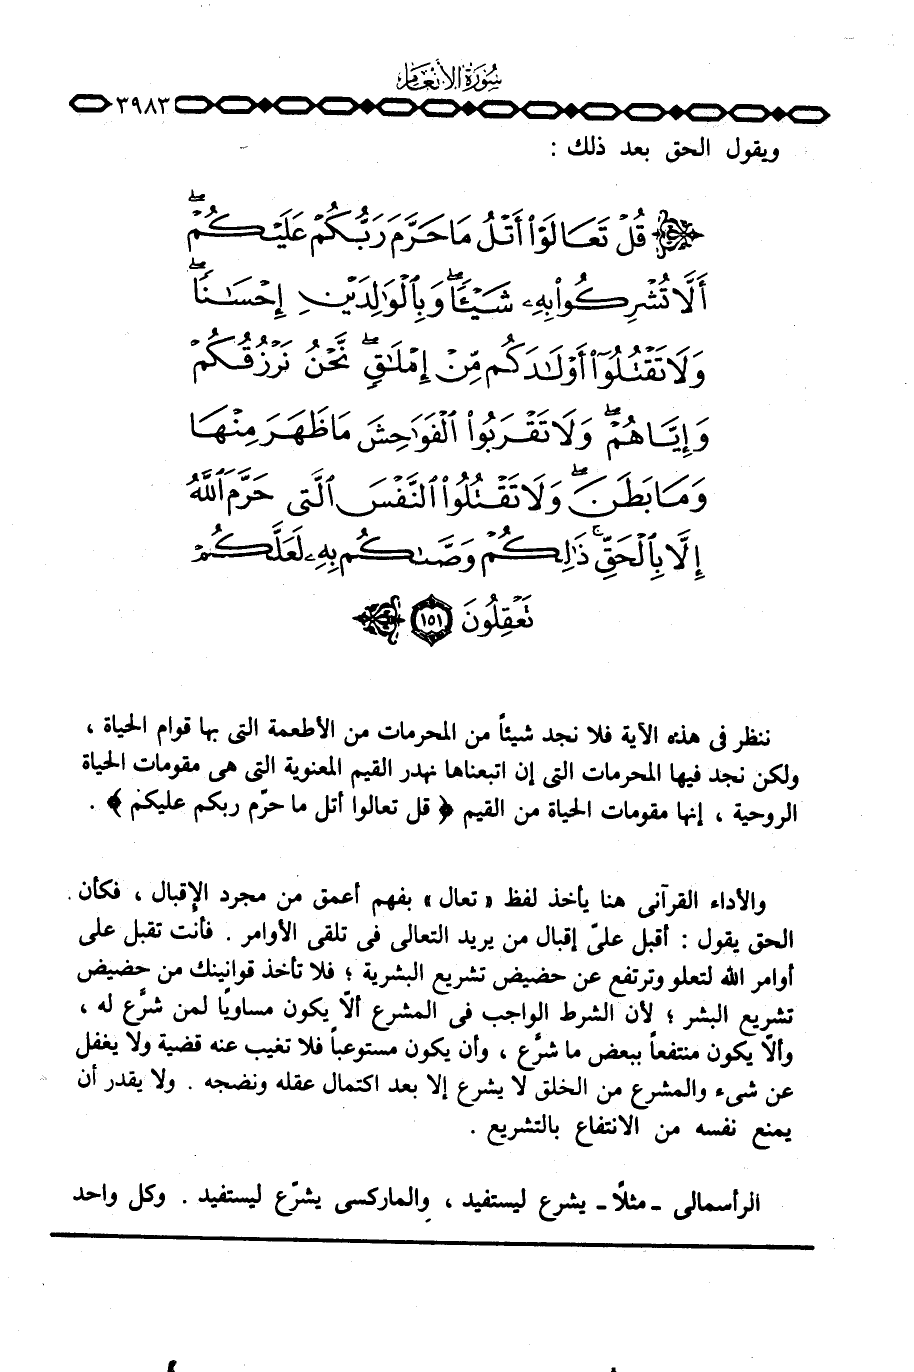 سورة الأنعام
٣٩٨٣
ويقول الحق بعد ذلك :
قُلْ تَعَالَوْا۟ أَتْلُ مَا حَرَّمَ رَبُّكُمْ عَلَيْكُمْ ۖ
أَلَّا تُشْرِكُوا۟ بِهِۦ شَيْـًٔا ۖ وَبِٱلْوَٰلِدَيْنِ إِحْسَـٰنًا ۖ
وَلَا تَقْتُلُوٓا۟ أَوْلَـٰدَكُم مِّنْ إِمْلَـٰقٍ ۖ نَّحْنُ نَرْزُقُكُمْ
وَإِيَّاهُمْ ۖ وَلَا تَقْرَبُوا۟ ٱلْفَوَٰحِشَ مَا ظَهَرَ مِنْهَا
وَمَا بَطَنَ ۖ وَلَا تَقْتُلُوا۟ ٱلنَّفْسَ ٱلَّتِى حَرَّمَ ٱللَّهُ
إِلَّا بِٱلْحَقِّ ۚ ذَٰلِكُمْ وَصَّىٰكُم بِهِۦ لَعَلَّكُمْ
تَعْقِلُونَ ١٥١
ننظر فى هذه الآية فلا نجد شيئاً من المحرمات من الأطعمة التى بها قوام الحياة ،
ولكن نجد فيها المحرمات التى إن اتبعناها نهدر القيم المعنوية التى هى مقومات الحياة
الروحية ، إنها مقومات الحياة من القيم ﴿ قل تعالوا أتل ما حرّم ربكم عليكم ﴾ .
والأداء القرآنى هنا يأخذ لفظ « تعال » بفهم أعمق من مجرد الإقبال ، فكأن
الحق يقول : أقبل علىّ إقبال من يريد التعالى فى تلقى الأوامر . فأنت تقبل على
أوامر الله لتعلو وترتفع عن حضيض تشريع البشرية ؛ فلا تأخذ قوانينك من حضيض
تشريع البشر ؛ لأن الشرط الواجب فى المشرع ألّا يكون مساويًا لمن شرَّع له ،
وألّا يكون منتفعاً ببعض ما شرَّع ، وأن يكون مستوعباً فلا تغيب عنه قضية ولا يغفل
عن شىء والمشرع من الخلق لا يشرع إلا بعد اكتمال عقله ونضجه . ولا يقدر أن
يمنع نفسه من الانتفاع بالتشريع .
الرأسمالى ـ مثلًا ـ يشرع ليستفيد ، والماركسى يشرّع ليستفيد . وكل واحد